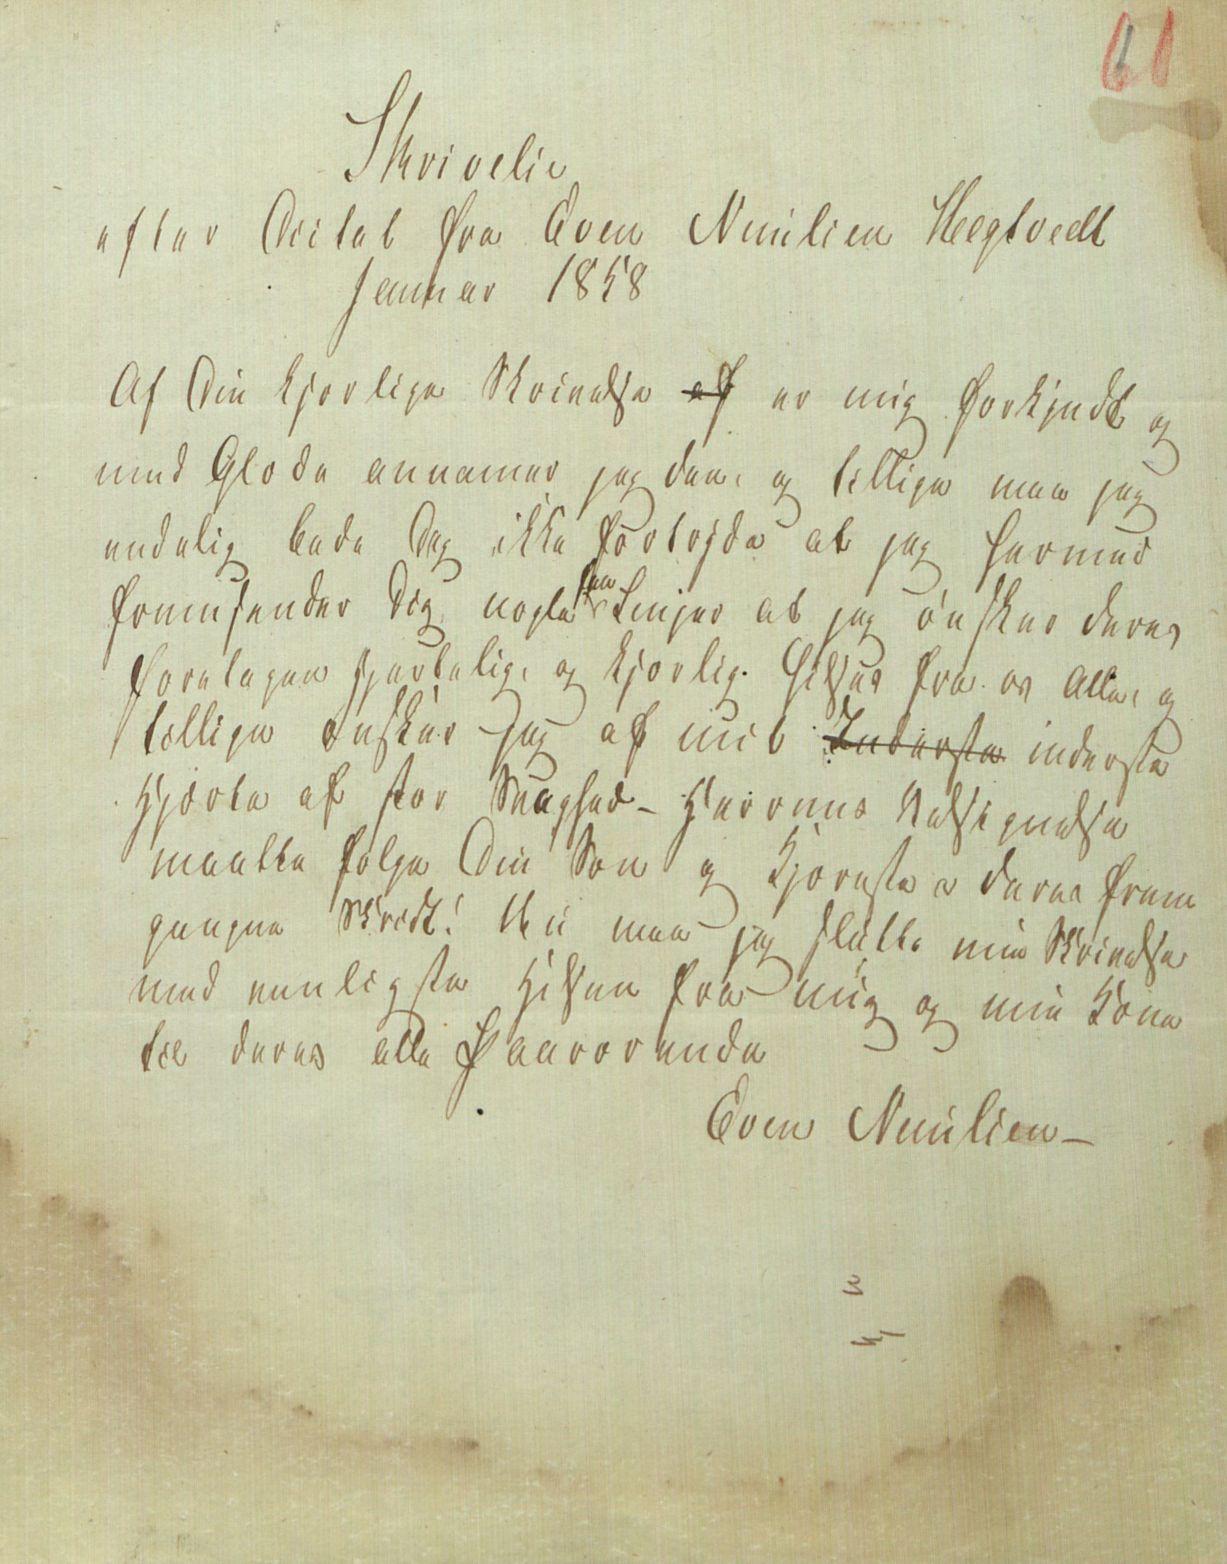 61
Skrivelse
efter Dictat fra Even Nuulien Hegtvedt
Januar 1858
Af Din kjærlige Skrivelse af er mig forkyndt og
med Glæde annamer jeg den, og tillige maa jeg
endelig bede Dig ikke fortryde at jeg hermed
fremsender Dig nogle faa Linjer at jeg ønsker deres
foretagen hjertelig, og kjærlig. Hilses fra os Alle, og
tillige ønsker jeg af mit Inderste inderste
Hjerte af stor Svaghed - Herrens Velsignelse
maatte følge Din Søn og Kjæreste i deres frem
gangne Skridt! Nu maa jeg slutte min Skrivelse
med venligste Hilsen fra mig og min Kone
til deres alle Paarørende
Even Nuulien -